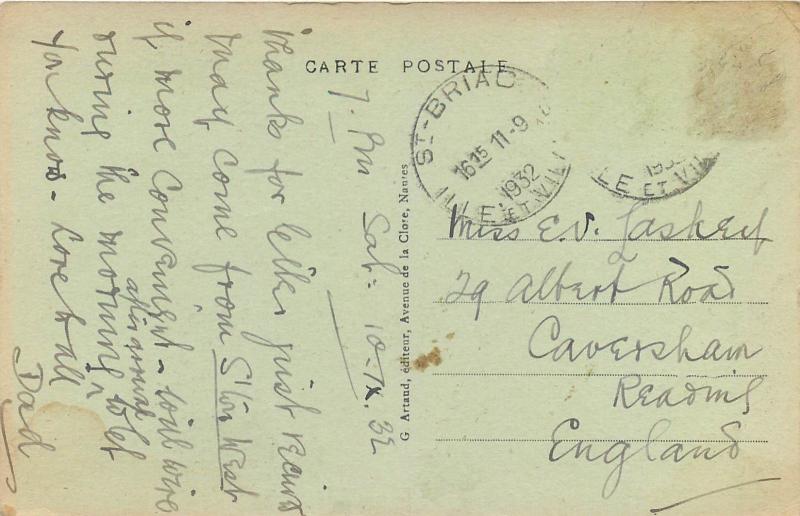 CARTE POSTALE
7. Pm Sat. 10-IX.32
Thanks for letter just recivd
may come from St'on West
if more convenient - will wire
during the morning to let
afternoon
you know - Love to all
Dad
G. Artaud, éditeur, Avenue de la Close, Nantes
ST-BRIAC
16 15 11-9
1932
ILLE ET VIL
1932
LE ET VIL
Miss E.V. Laskey
29 Albert Road
Caversham
Reading
England